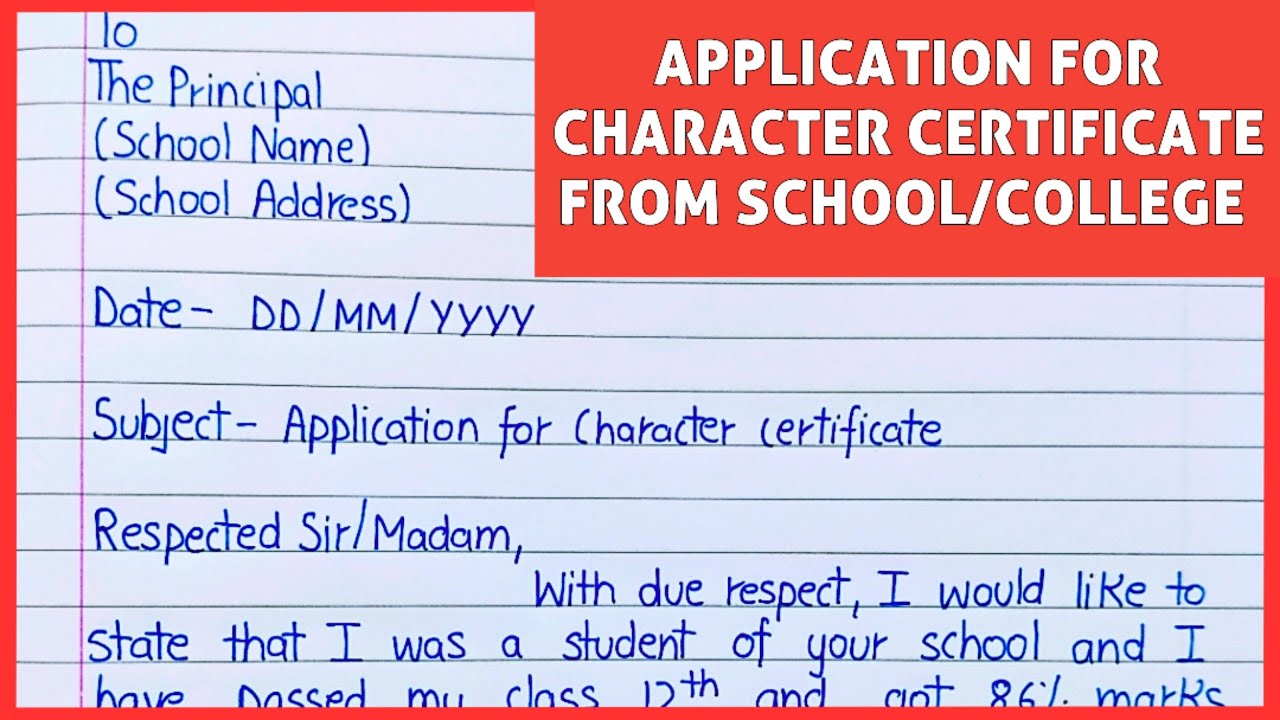 To
The Principal
(School Name)
(School Address)
APPLICATION FOR
CHARACTER CERTIFICATE
FROM SCHOOL/COLLEGE
Date- DD/MM/YYYY
Subject- Application for Character certificate
Respected Sir/Madam,
With due respect, I would like to
state that I was a student of your school and I
have passed my class 12th and got 86% marks